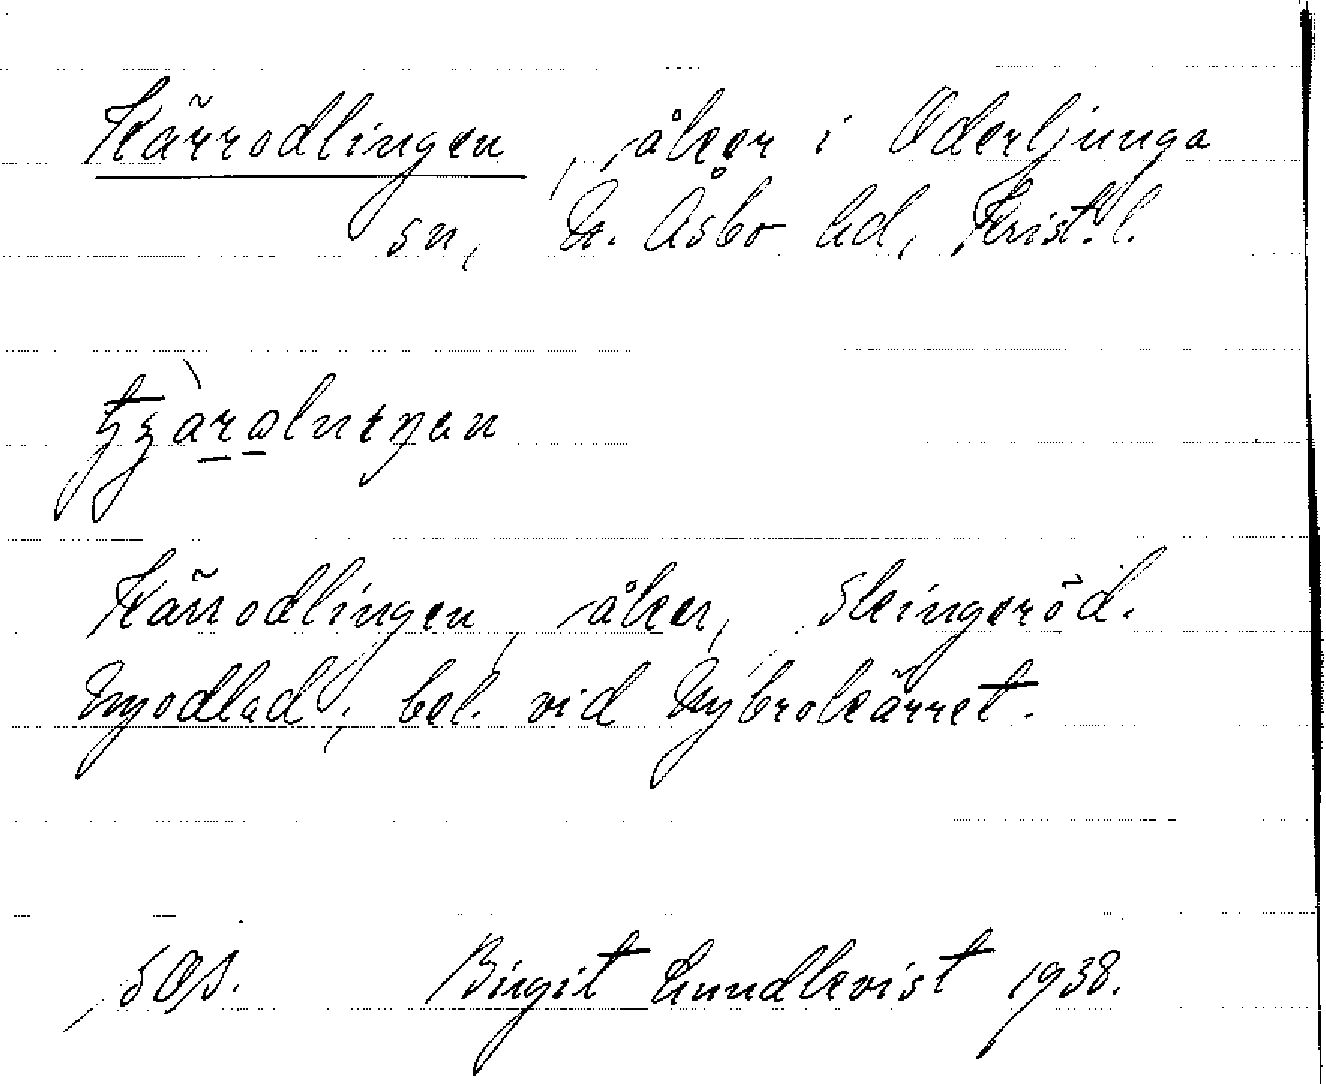 Kärrodlingen, åker i Oderljunga
sn, N. Åsbo hd, Krist. l.
Kärrodlingen, åker, Skingeröd.
Nyodlad, bel. vid Nybrokärret.
SOS. Birgit Lundkvist 1938.